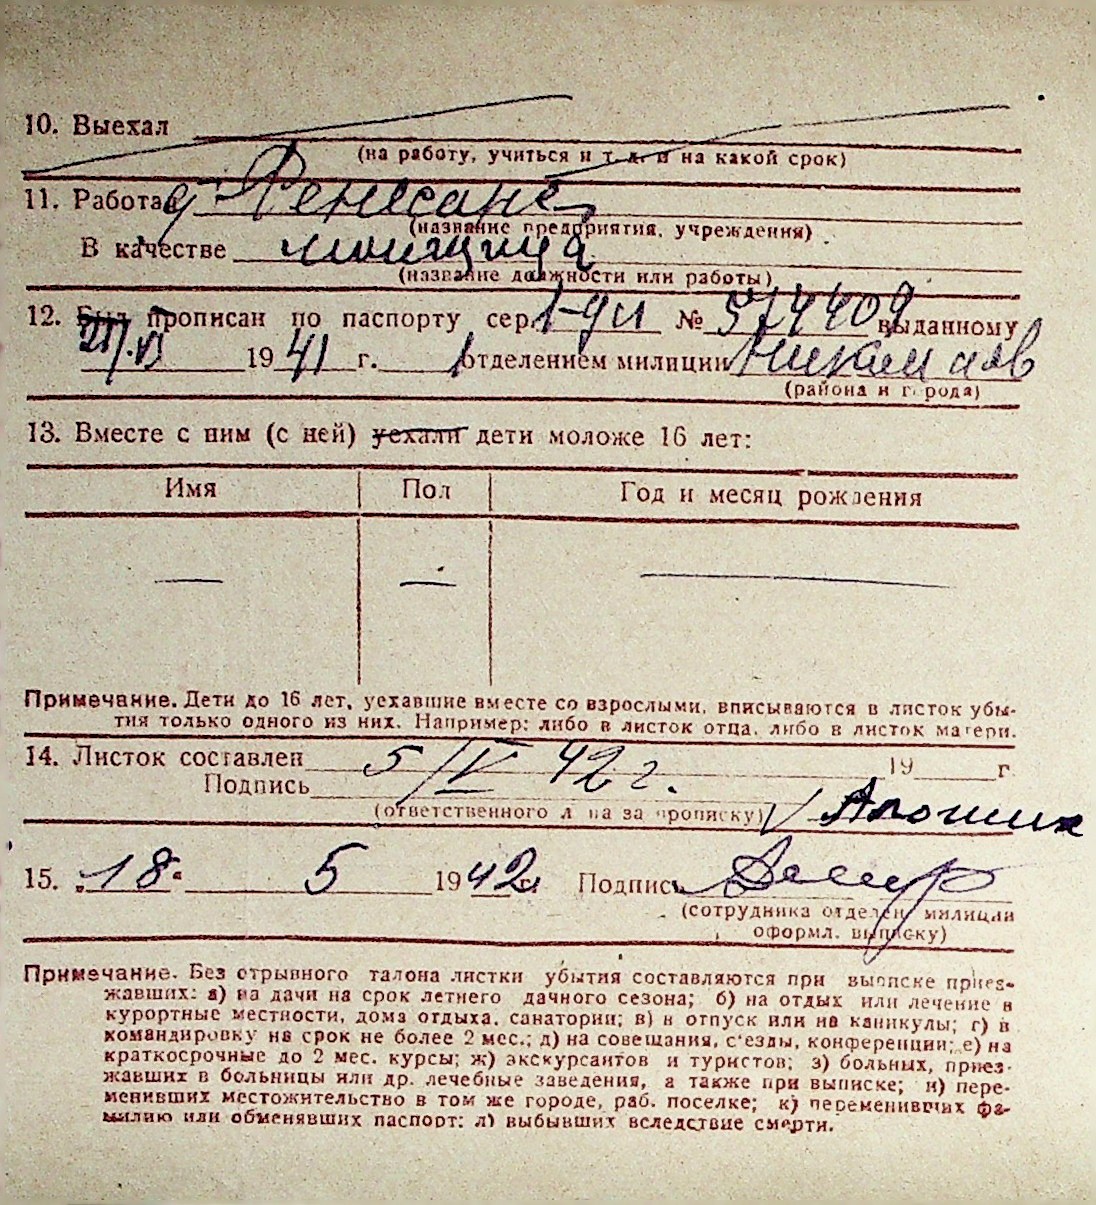 10. Выехал
(на работу, учиться и т. д. и на какой срок)
11. Работал
(название предприятия, учреждения)
В качестве
(название должности или работы)
12. Был прописан по паспорту сер. № 574409 выданному
1941 г. 1 отделением милиции
(района и города)
13. Вместе с ним (с ней) уехали дети моложе 16 лет:
Имя Пол Год и месяц рождения
— — —
Примечание. Дети до 16 лет, уехавшие вместе со взрослыми, вписываются в листок убы-
тия только одного из них. Например: либо в листок отца, либо в листок матери.
14. Листок составлен 5/V 42 г. 19 г
Подпись
(ответственного лица за прописку)
15. „18“ 5 1942 г. Подпись
(сотрудника отделен. милиции
оформл. выписку)
Примечание. Без отрывного талона листки убытия составляются при выписке приез-
жавших: а) на дачи на срок летнего дачного сезона; б) на отдых или лечение в
курортные местности, дома отдыха, санатории; в) в отпуск или на каникулы; г) в
командировку на срок не более 2 мес.; д) на совещания, с'езды, конференции; е) на
краткосрочные до 2 мес. курсы; ж) экскурсантов и туристов; з) больных, приез-
жавших в больницы или др. лечебные заведения, а также при выписке; и) пере-
менивших местожительство в том же городе, раб. поселке; к) переменивших фа-
милию или обменявших паспорт; л) выбывших вследствие смерти.